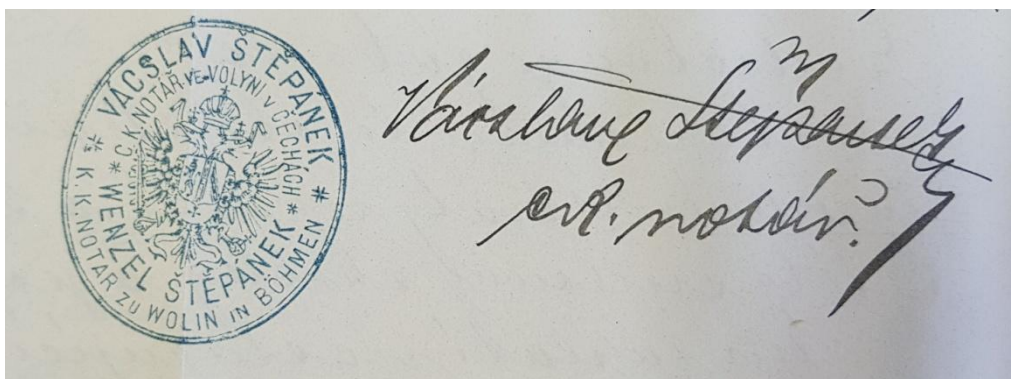 VÁCSLAV ŠTĚPÁNEK
* C. K. NOTÁŘ VE VOLYNI V ČECHÁCH *
* WENZEL ŠTĚPANEK *
* K. K. NOTAR ZU WOLIN IN BÖHMEN *
Václav Štěpánek
ck. notář.